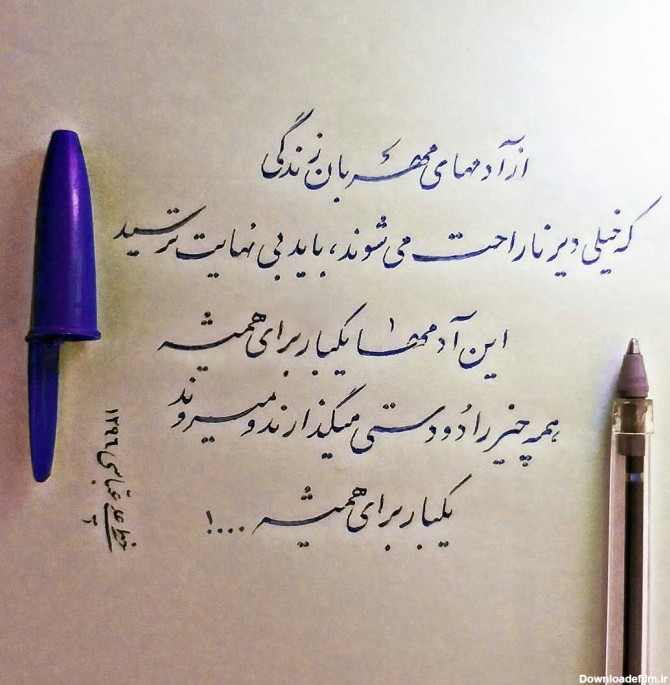 از آدمهای مهربان زندگی
که خیلی دیر ناراحت می شوند، باید بی نهایت ترسید
این آدمها یکبار برای همیشه
همه چیز را دو دستی میگذارند و میروند
یکبار برای همیشه ...!
۱۳۹۶
Downloadefilm.ir